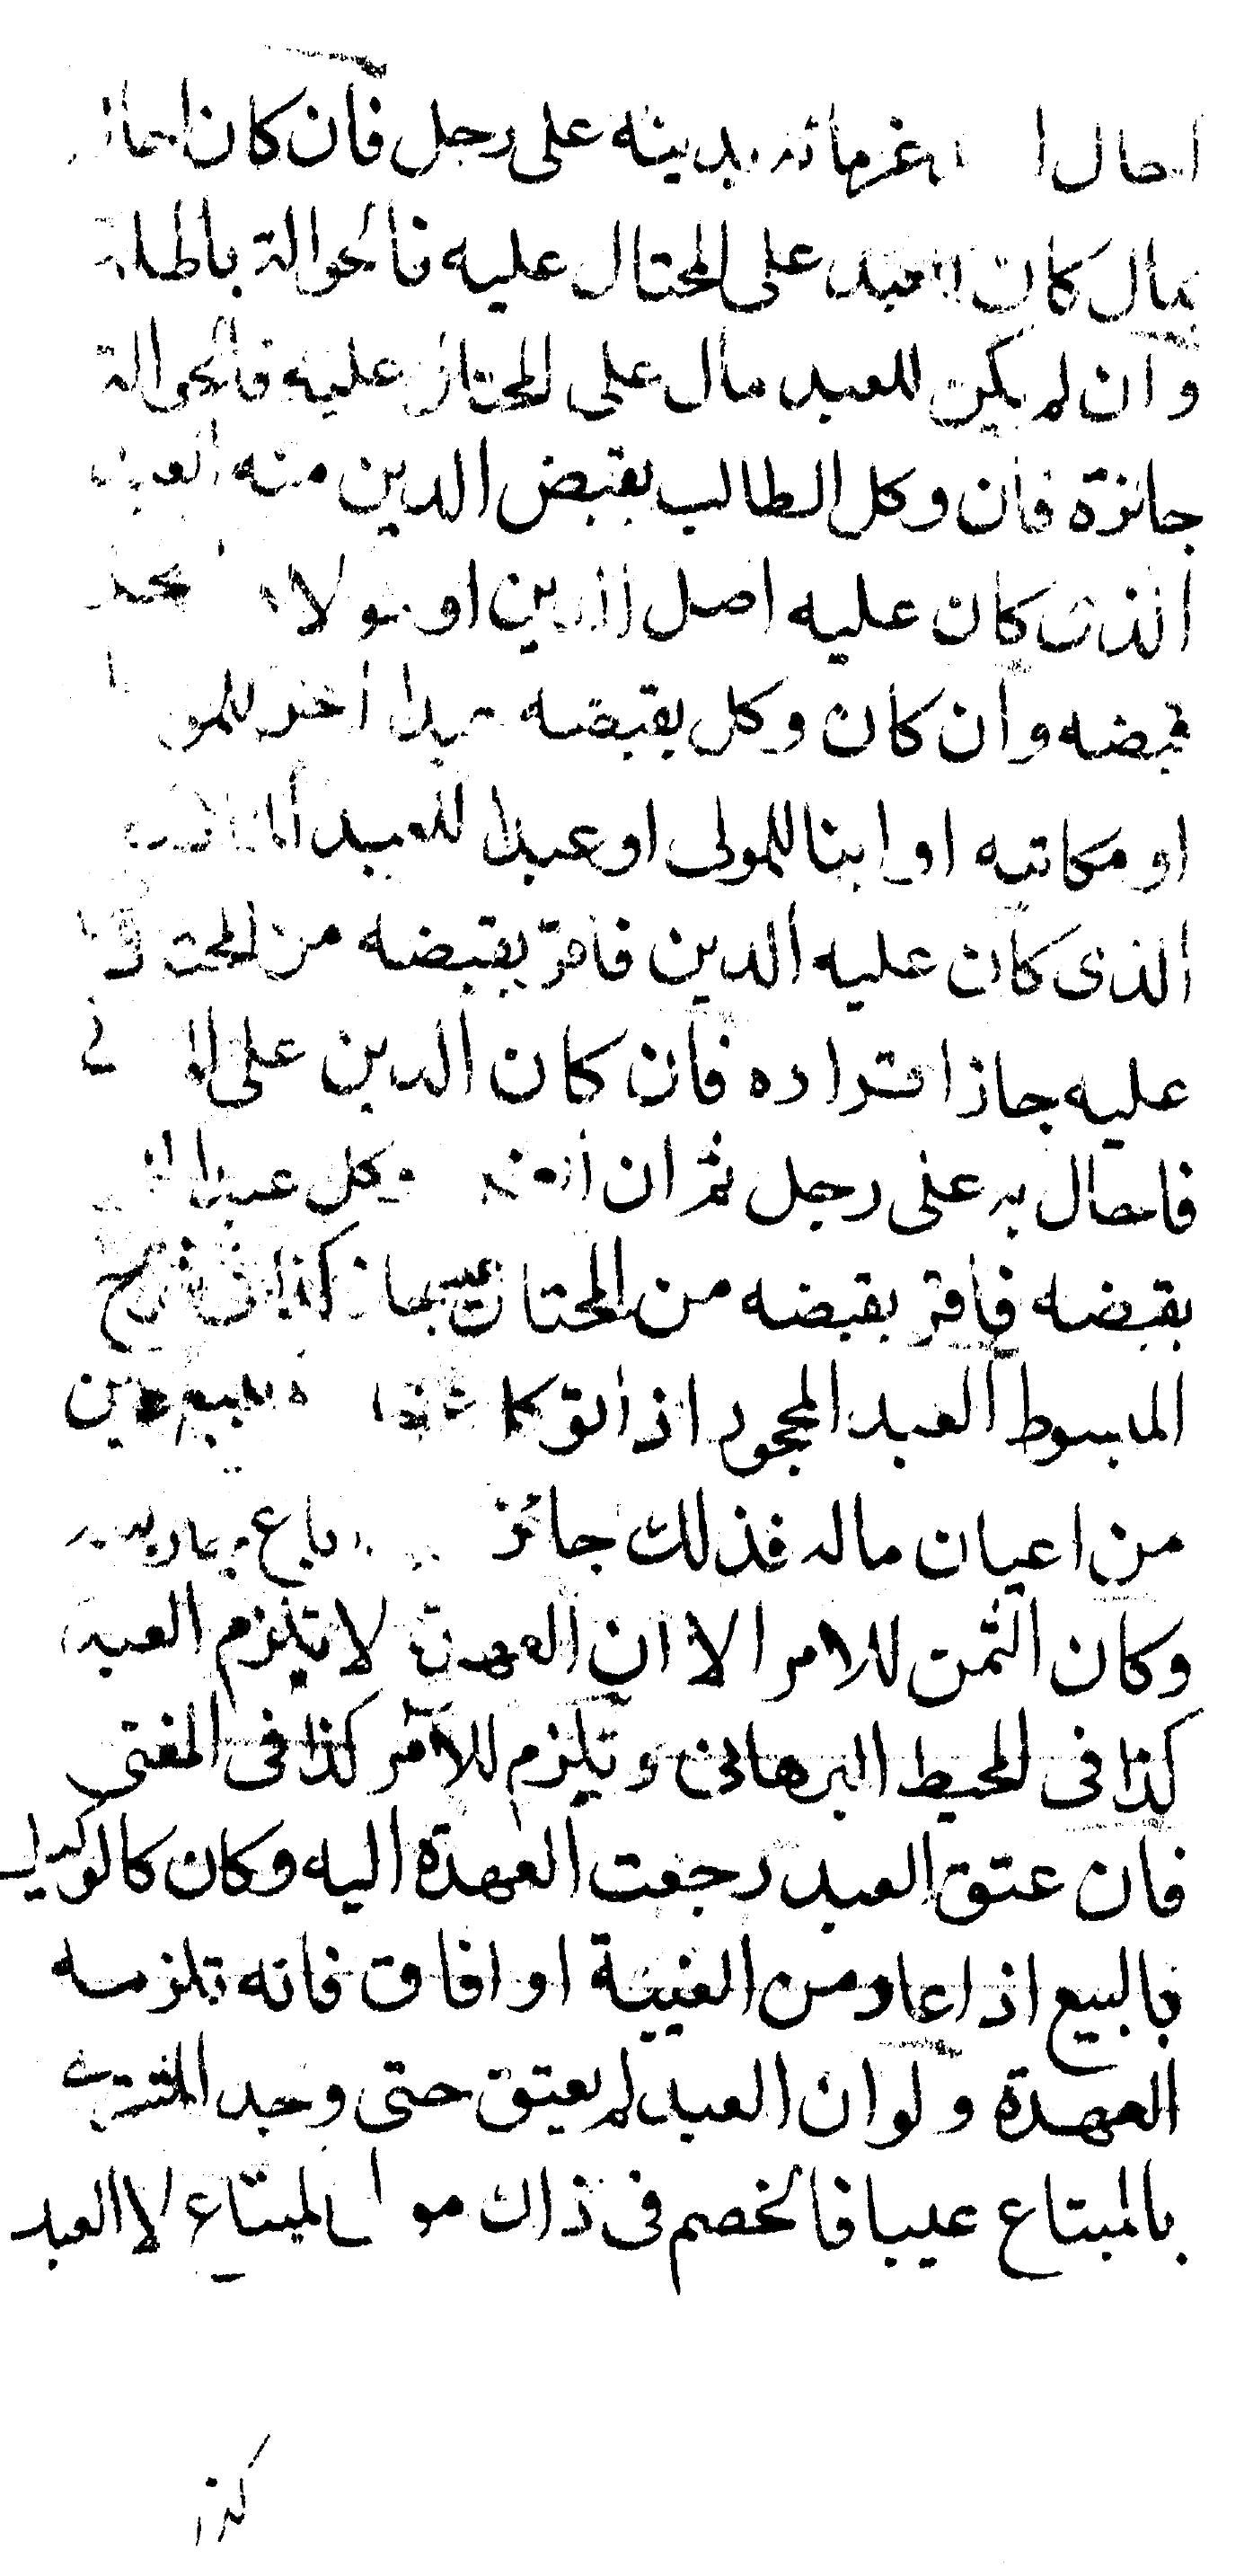 احال غرمائه بدينه على رجل فان كان احاله
بمال كان للعبد على المحتال عليه فالحوالة باطلة
وان لم يكن للعبد مال على المحتال عليه فالحوالة
جائزة فان وكل الطالب بقبض الدين منه العبد
الذى كان عليه اصل الدين او مولاه
قبضه وان كان وكل بقبضه عبدا اخر للمولى
او مكاتبه او ابنا للمولى او عبدا للعبد
الذى كان عليه الدين فاقر بقبضه من المحتال
عليه جاز اقراره فان كان الدين على
فاحال به على رجل ثم ان وكل عبدا
بقبضه فاقر بقبضه من المحتال عليه جاز كذا فى شرح
المبسوط العبد المحجور اذا توكل ببيع عين
من اعيان ماله فذلك جائز باع
وكان الثمن للامر الا ان العهدة لا تلزم العبد
كذا فى المحيط البرهانى وتلزم للآمر كذا فى المغنى
فان عتق العبد رجعت العهدة اليه وكان كالوكيل
بالبيع اذا عاد من الغيبة او افاق فانه تلزمه
العهدة ولو ان العبد لم يعتق حتى وجد المشترى
بالمبتاع عيبا فالخصم فى ذلك المبتاع لا العبد
كذا